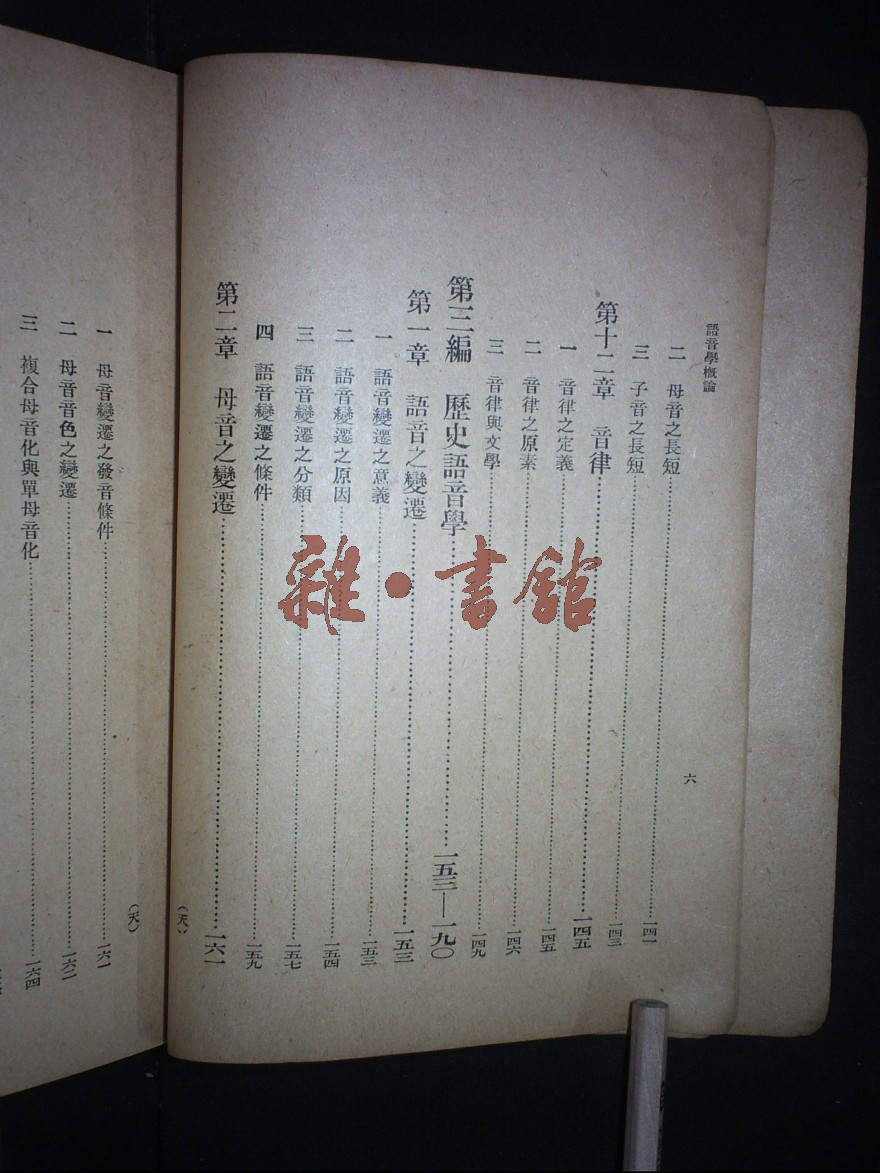 語音學概論
六
二 母音之長短……一四一
三 子音之長短……一四三
第十二章 音律……一四五
一 音律之定義……一四五
二 音律之原素……一四六
三 音律與文學……一四九
第三編 歷史語音學……一五三—一九〇
第一章 語音之變遷……一五三
一 語音變遷之意義……一五三
二 語音變遷之原因……一五四
三 語音變遷之分類……一五七
四 語音變遷之條件……一五九
第二章 母音之變遷……一六一
(天)
(天)
一 母音變遷之發音條件……一六一
二 母音音色之變遷……一六二
三 複合母音化與單母音化……一六四
雜·書館